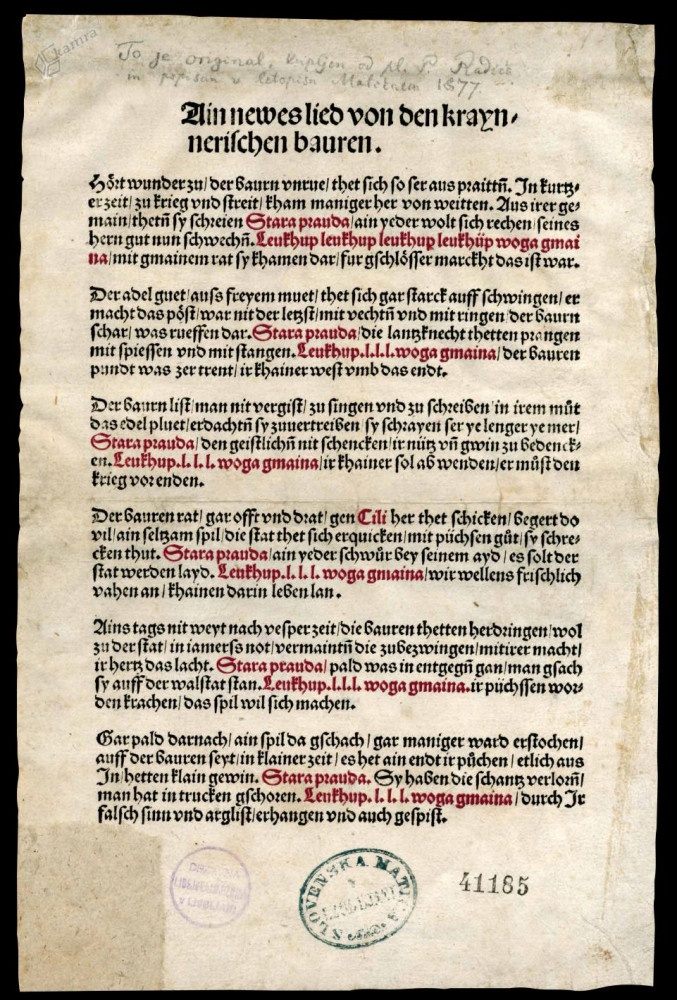 kamra
To je original, kupljen od pl. P. Radics
in popisan v letopisu Matičnem 1877
Ain newes lied von den krayn⸗
nerischen bauren.
Hört wunder zu/ der baurn vnrue/ thet sich so ser aus praittn̄. In kurtz⸗
er zeit/ zu krieg vnd streit/ kham maniger her von weitten. Aus irer ge⸗
main/ thetn̄ sy schreien Stara prauda/ ain yeder wolt sich rechen/ seines
hern gut nun schwechn̄. Leukhup leukhup leukhup leukhüp woga gmai
na/ mit gmainem rat sy khamen dar/ fur gschlösser marckht das ist war.
Der adel guet/ auss freyem muet/ thet sich gar starck auff schwingen/ er
macht das pöst/ war nit der letzst/ mit vechtn̄ vnd mit ringen/ der baurn
schar/ was rueffen dar. Stara prauda/ die lantzknecht thetten prangen
mit spiessen vnd mit stangen. Leukhup.l.l.l. woga gmaina/ der bauren
pundt was zer trent/ ir khainer west vmb das endt.
Der baurn list/ man nit vergist/ zu singen vnd zu schreiben/ in irem müt
das edel pluet/ erdachtn̄ sy zuuertreiben/ sy schrayen ser ye lenger ye mer/
Stara prauda/ den geistlichn̄ nit schencken/ ir nütz vn̄ gwin zu bedenck⸗
en. Leukhup.l.l.l. woga gmaina/ ir khainer sol ab wenden/ er müst den
krieg vor enden.
Der bauren rat/ gar offt vnd drat/ gen Cili her thet schicken/ begert do
vil/ ain seltzam spil/ die stat thet sich erquicken/ mit püchsen güt/ sy schre⸗
cken thut. Stara prauda/ ain yeder schwür bey seinem ayd/ es solt der
stat werden layd. Leukhup.l.l.l. woga gmaina/ wir wellens frischlich
vahen an/ khainen darin leben lan.
Ains tags nit weyt nach vesper zeit/ die bauren thetten herdringen/ wol
zu der stat/ in iamerss not/ vermaintn̄ die zubezwingen/ mit irer macht/
ir hertz das lacht. Stara prauda/ pald was in entgegn̄ gan/ man gsach
sy auff der walstat stan. Leukhup.l.l.l. woga gmaina. ir püchssen wor⸗
den krachen/ das spil wil sich machen.
Gar pald darnach/ ain spil da gschach/ gar maniger ward erstochen/
auff der bauren seyt/ in klainer zeit/ es het ain endt ir püchen/ etlich aus
In/ hetten klain gewin. Stara prauda. Sy haben die schantz verlorn̄/
man hat in trucken gschoren. Leukhup.l.l.l. woga gmaina/ durch Ir
falsch sinn vnd arglist/ erhangen vnd auch gespist.
V LJUBLJANI
SLOVENSKA MATICA
V
LJUBLJANI
41185